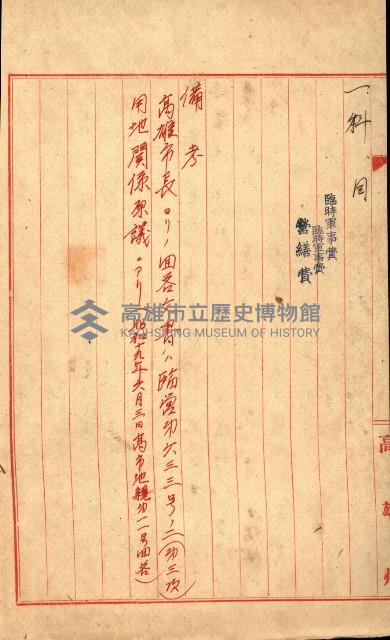 一科目
臨時軍事費
臨時軍事費
營繕費
備考
高雄市長ヨリノ回答文書ハ臨營功六三三号ノ二(功三次
用地関係原議ニアリ(昭和十九年六月三日高市地親功一一号回答)
高雄州
高雄市立歷史博物館
KAOHSIUNG MUSEUM OF HISTORY